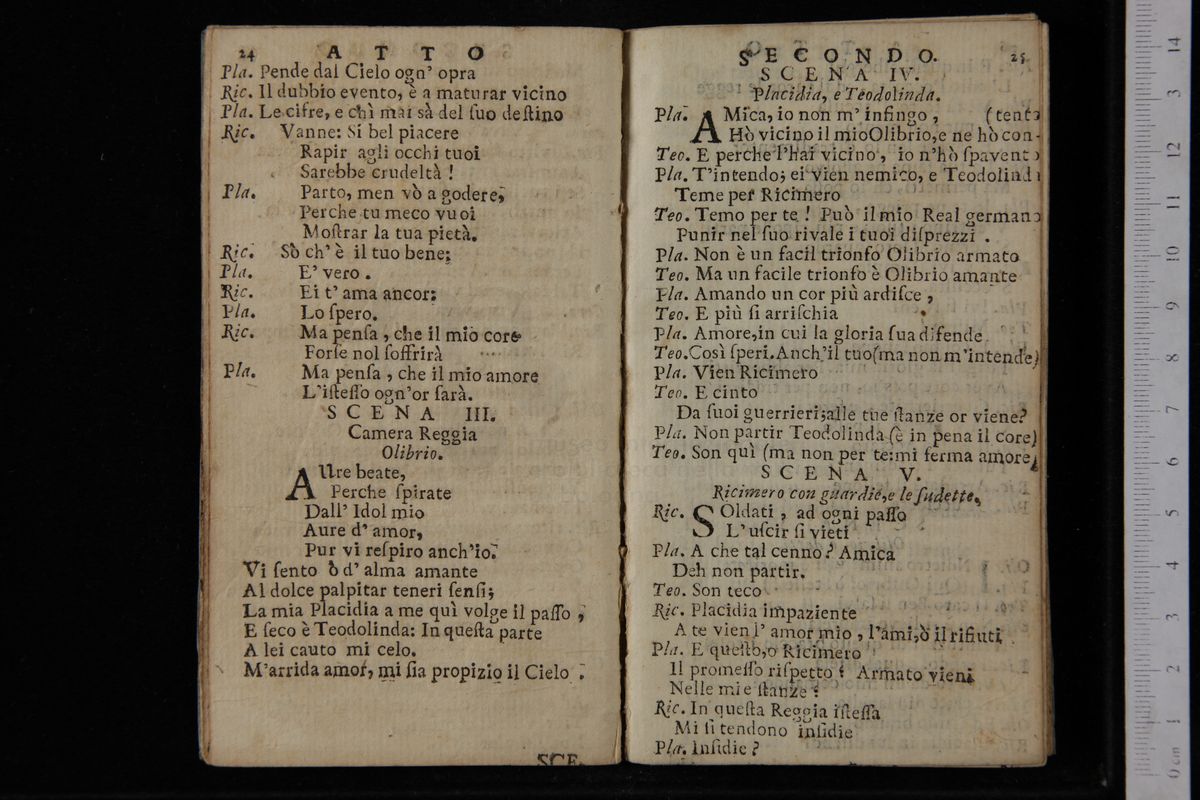 24 ATTO
Pla. Pende dal Cielo ogn' opra
Ric. Il dubbio evento, è a maturar vicino
Pla. Le cifre, e chi mai sà del ſuo deſtino
Ric. Vanne: Si bel piacere
Rapir agli occhi tuoi
Sarebbe crudeltà !
Pla. Parto, men vò a godere;
Perche tu meco vuoi
Moſtrar la tua pietà.
Ric. Sò ch' è il tuo bene;
Pla. E' vero .
Ric. Ei t' ama ancor;
Pla. Lo ſpero.
Ric. Ma penſa , che il mio core
Forſe nol ſoffrirà
Pla. Ma penſa , che il mio amore
L'iſteſſo ogn'or ſarà.
SCENA III.
Camera Reggia
Olibrio.
AUre beate,
Perche ſpirate
Dall' Idol mio
Aure d' amor,
Pur vi reſpiro anch'io.
Vi ſento ò d' alma amante
Al dolce palpitar teneri ſenſi;
La mia Placidia a me quì volge il paſſo ;
E ſeco è Teodolinda: In queſta parte
A lei cauto mi celo.
M'arrida amor, mi ſia propizio il Cielo .
SCE.
SECONDO. 25
SCENA IV.
Placidia, e Teodolinda.
Pla. AMica, io non m' infingo , (tento
Hò vicino il mio Olibrio, e ne hò con-
Teo. E perche l'hai vicino , io n'hò ſpavento
Pla. T'intendo; ei vien nemico, e Teodolinda
Teme per Ricimero
Teo. Temo per te ! Può il mio Real germano
Punir nel ſuo rivale i tuoi diſprezzi .
Pla. Non è un facil trionfo Olibrio armato
Teo. Ma un facile trionfo è Olibrio amante
Pla. Amando un cor più ardiſce ,
Teo. E più ſi arriſchia
Pla. Amore, in cui la gloria ſua difende
Teo. Così ſperi. Anch'il tuo (ma non m'intende)
Pla. Vien Ricimero
Teo. E cinto
Da ſuoi guerrieri; alle tue ſtanze or viene?
Pla. Non partir Teodolinda (è in pena il core)
Teo. Son quì (ma non per te: mi ferma amore)
SCENA V.
Ricimero con guardie, e le ſudette.
Ric. SOldati , ad ogni paſſo
L' uſcir ſi vieti
Pla. A che tal cenno ? Amica
Deh non partir.
Teo. Son teco
Ric. Placidia impaziente
A te vien l' amor mio , l'ami, ò il rifiuti
Pla. E queſto, o Ricimero
Il promeſſo riſpetto ? Armato vieni
Nelle mie ſtanze ?
Ric. In queſta Reggia iſteſſa
Mi ſi tendono inſidie
Pla. Inſidie ?